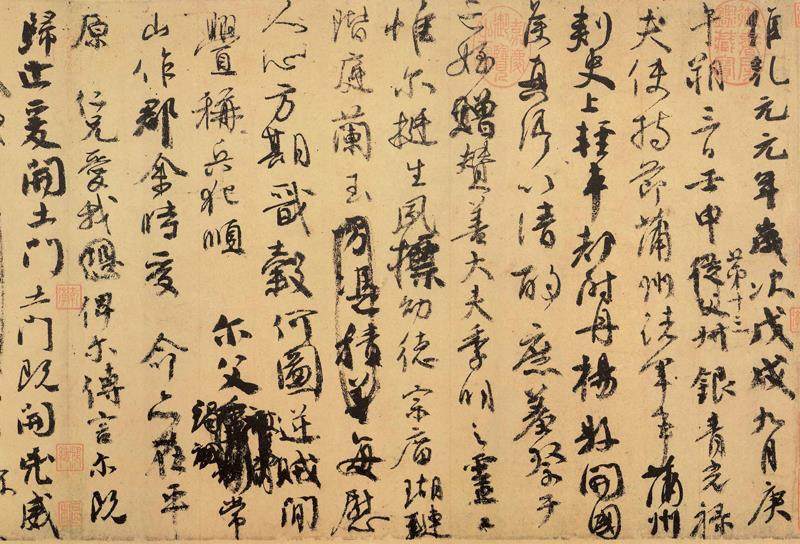 維乾元元年歲次戊戌九月庚
午朔三日壬申第十三從父叔銀青光祿
夫使持節蒲州諸軍事蒲州
刺史上輕車都尉丹楊縣開國
侯真卿以清酌庶羞祭于
亡姪贈贊善大夫季明之靈曰
惟爾挺生夙標幼德宗廟瑚璉
階庭蘭玉方憑積善每慰
人心方期戩穀何圖逆賊閒
舋稱兵犯順爾父竭誠常
山作郡余時受命亦在平
原仁兄愛我恐俾爾傳言爾既
歸止爰開土門土門既開凶威